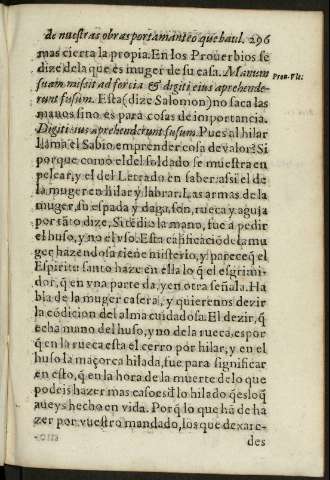 de nuestras obras portamanteo que baul. 296
mas cierta la propia. En los Prouerbios se
dize de la que es muger de su casa. Manum
suam misit ad forcia & digiti eius aprehende-
runt fusum. Esta (dize Salomon) no saca las
manos sino es para cosas de importancia.
Digiti eius aprehenderunt fusum. Pues al hilar
llama el Sabio emprender cosa de valor? Si
porque como el del soldado se muestra en
pelear, y el del Letrado en saber: assi el de
la muger en hilar y labrar. Las armas de la
muger, su espada y daga, son, rueca y aguja
por tãto dize, Si tẽdio la mano, fue a pedir
el huso, y no el vso. Esta calificaciõ de la mu
ger hazendosa tiene misterio, y pareceq̃ el
Espiritu santo haze en ella lo q̃ el esgrimi-
dor, q̃ en vna parte da, y en otra señala. Ha
bla de la muger casera, y quierenos dezir
la cõdicion del alma cuidadosa. El dezir, q̃
echa mano del huso, y no de la rueca, es por
q̃ en la rueca esta el cerro por hilar, y en el
huso la maçorca hilada, fue para significar
en esto, q̃ en la hora de la muerte de lo que
podeis hazer mas caso es
aueys hecho en vida. Porq̃ lo que hã de ha
zer por vuestro mandado, los que dexare-
des
Prou. vlt.